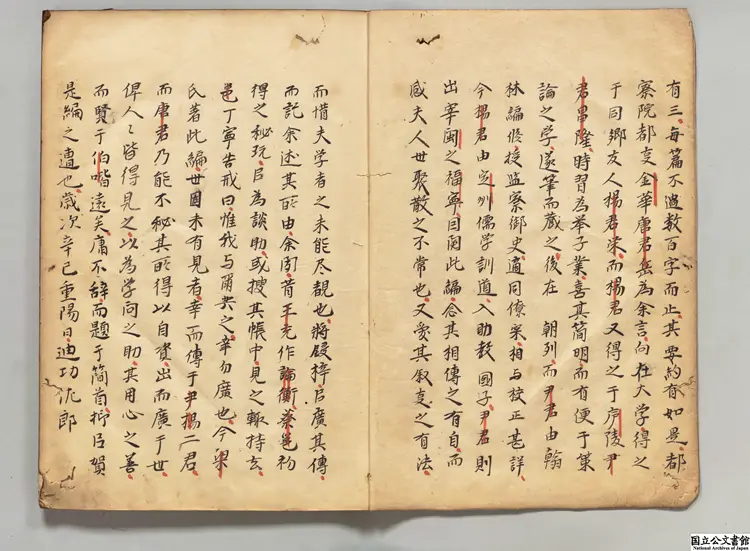 有三每篇不過數百字而止其要約有如是都
察院都事金華唐君岳為余言向在大学得之
于同鄉友人楊君榮而楊君又得之于庐陵尹
君昌隆時習為举子業喜其簡明而有便于策
論之学遂筆而蔵之後在 朝列而尹君由翰
林編修授監察御史適同僚寀相与挍正甚詳
今楊君由定州儒学訓導入助教 國子尹君則
出宰閩之福寧因閲此編念其相傳之有自而
感夫人世聚散之不常也又爱其叙事之有法
而惜夫学者之未能尽覩也将锓梓㠯廣其傳
而託余述其所由余聞昔王充作論衡蔡邕初
得之秘玩㠯為談助或搜其帳中見之輙持去
邕丁寧苦戒曰惟我与爾共之幸勿廣也今梁
氏著此編世固未有見者幸而傳于尹楊二君
而唐君乃能不秘其所得以自資出而廣于世
俾人人皆得見之以為学问之助其用心之善
而賢于伯喈遠矣庸不辞而題于簡首抑㠯賀
是編之遭也歳次辛巳重陽日迪功佽郎
国立公文書館
National Archives of Japan